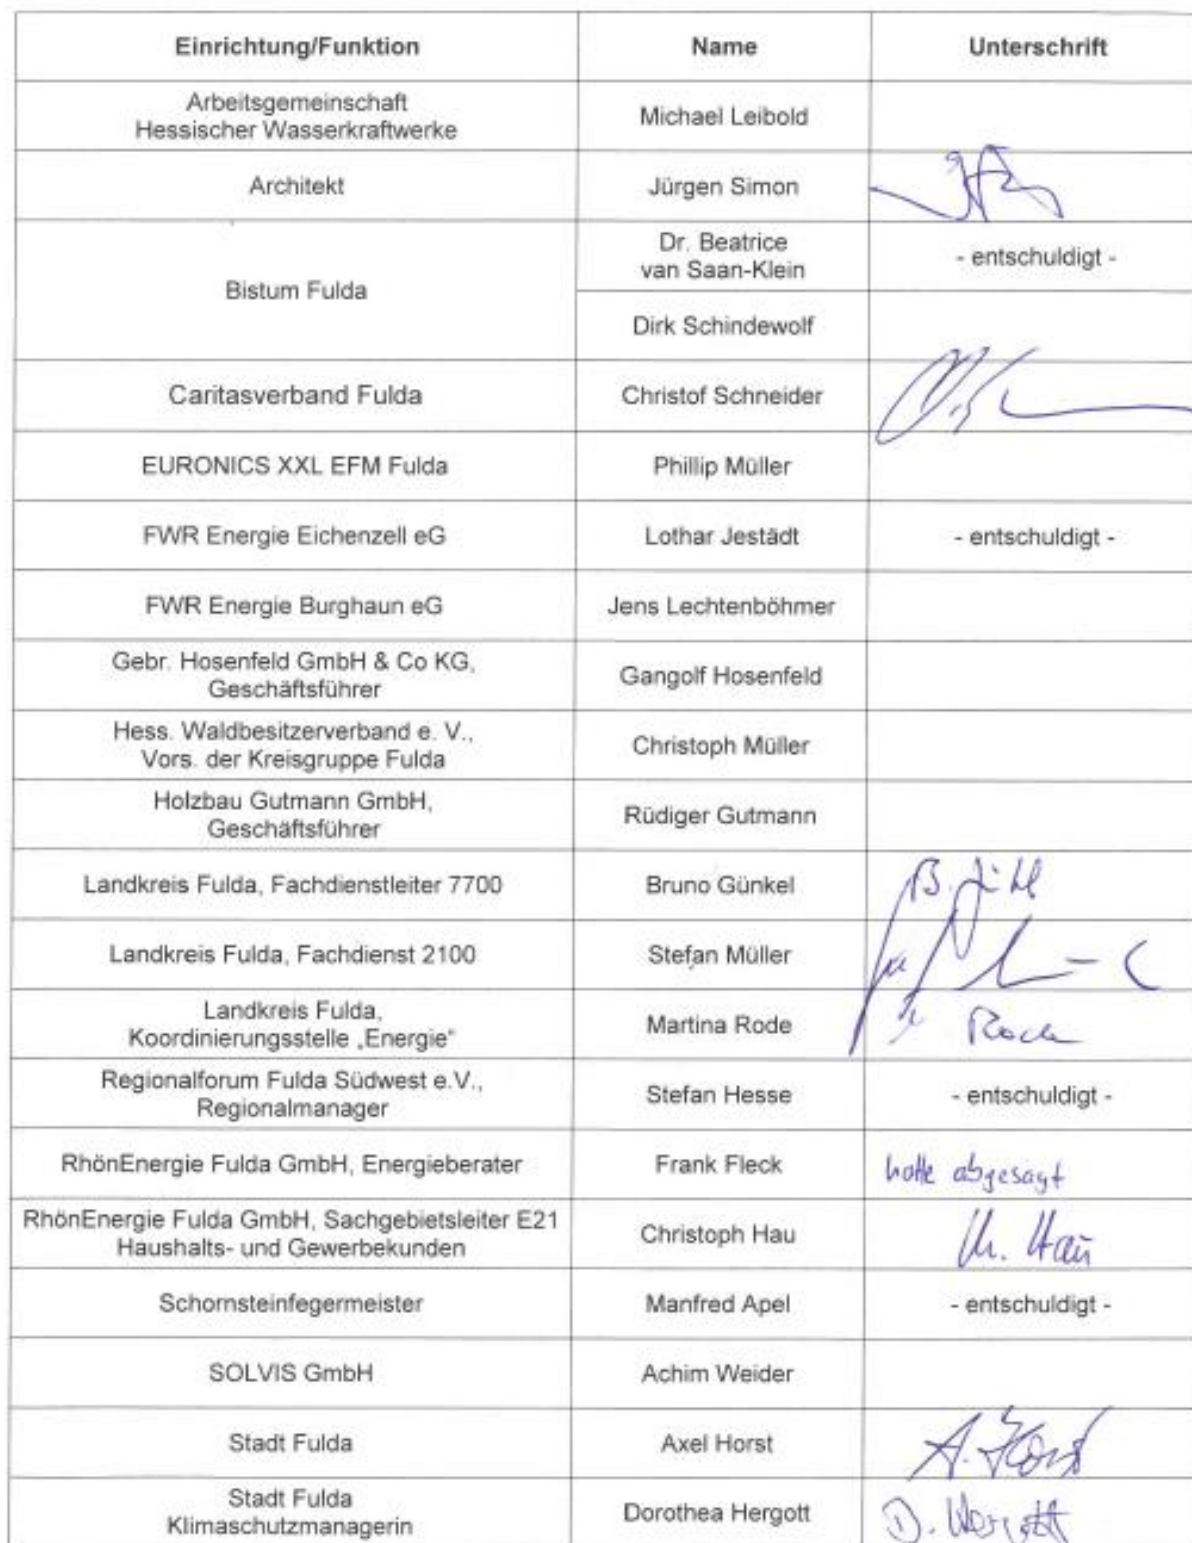 Einrichtung/Funktion Name Unterschrift
Arbeitsgemeinschaft
Hessischer Wasserkraftwerke
Michael Leibold
Architekt Jürgen Simon
Bistum Fulda
Dr. Beatrice
van Saan-Klein
- entschuldigt -
Dirk Schindewolf
Caritasverband Fulda Christof Schneider
EURONICS XXL EFM Fulda Phillip Müller
FWR Energie Eichenzell eG Lothar Jestädt - entschuldigt -
FWR Energie Burghaun eG Jens Lechtenböhmer
Gebr. Hosenfeld GmbH & Co KG,
Geschäftsführer
Gangolf Hosenfeld
Hess. Waldbesitzerverband e. V.,
Vors. der Kreisgruppe Fulda
Christoph Müller
Holzbau Gutmann GmbH,
Geschäftsführer
Rüdiger Gutmann
Landkreis Fulda, Fachdienstleiter 7700 Bruno Günkel
Landkreis Fulda, Fachdienst 2100 Stefan Müller
Landkreis Fulda,
Koordinierungsstelle „Energie"
Martina Rode
Regionalforum Fulda Südwest e.V.,
Regionalmanager
Stefan Hesse - entschuldigt -
RhönEnergie Fulda GmbH, Energieberater Frank Fleck hatte abgesagt
RhönEnergie Fulda GmbH, Sachgebietsleiter E21
Haushalts- und Gewerbekunden
Christoph Hau Ch. Hau
Schornsteinfegermeister Manfred Apel - entschuldigt -
SOLVIS GmbH Achim Weider
Stadt Fulda Axel Horst A. Horst
Stadt Fulda
Klimaschutzmanagerin
Dorothea Hergott D. Hergott